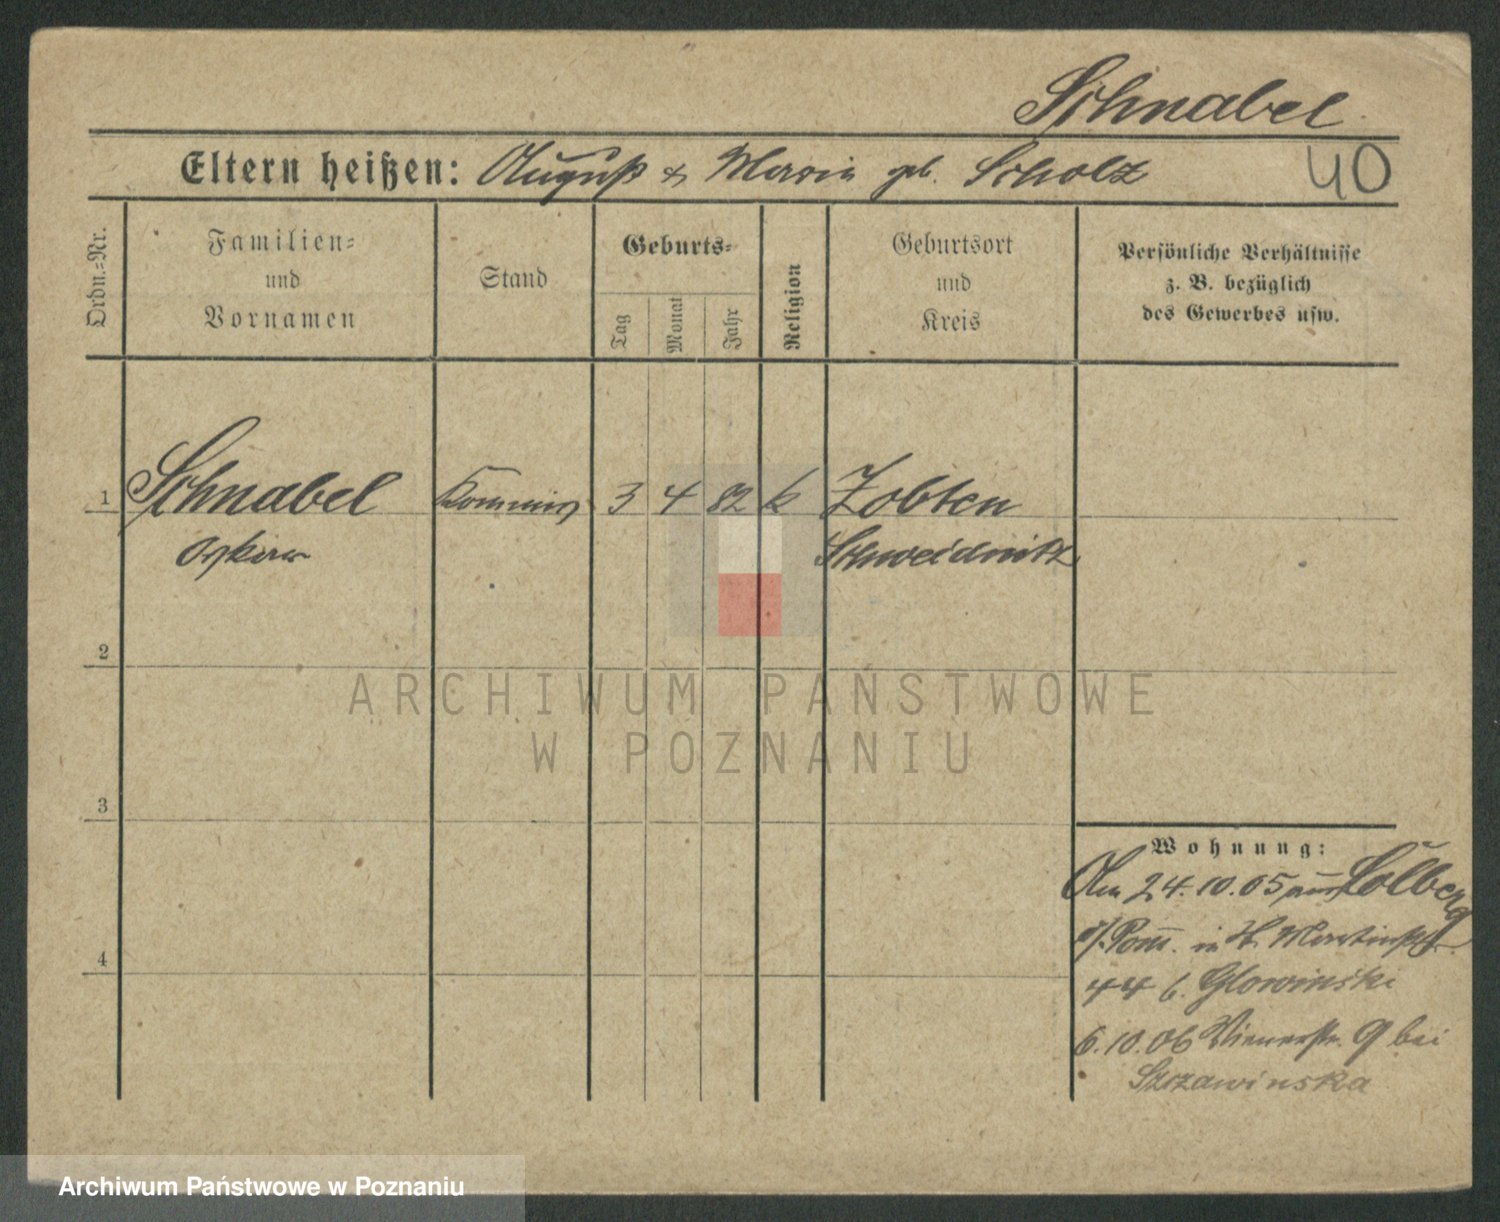 Schnabel
Eltern heißen: August & Maria geb. Scholz
40
Ordn.=Nr.
Familien=
und
Vornamen
Stand
Geburts=
Tag
Monat
Jahr
Religion
Geburtsort
und
Kreis
Persönliche Verhältnisse
z. B. bezüglich
des Gewerbes usw.
1
Schnabel
Kommis
3
4
82
k
Zobten
Oskar
Schweidnitz
2
3
4
Wohnung:
Am 24.10.05 aus Colberg
i/Pom. in St. Martinstr.
44 b. Glowinski
6.10.06 Wienerstr. 9 bei
Szczawinska
ARCHIWUM PAŃSTWOWE
W POZNANIU
Archiwum Państwowe w Poznaniu